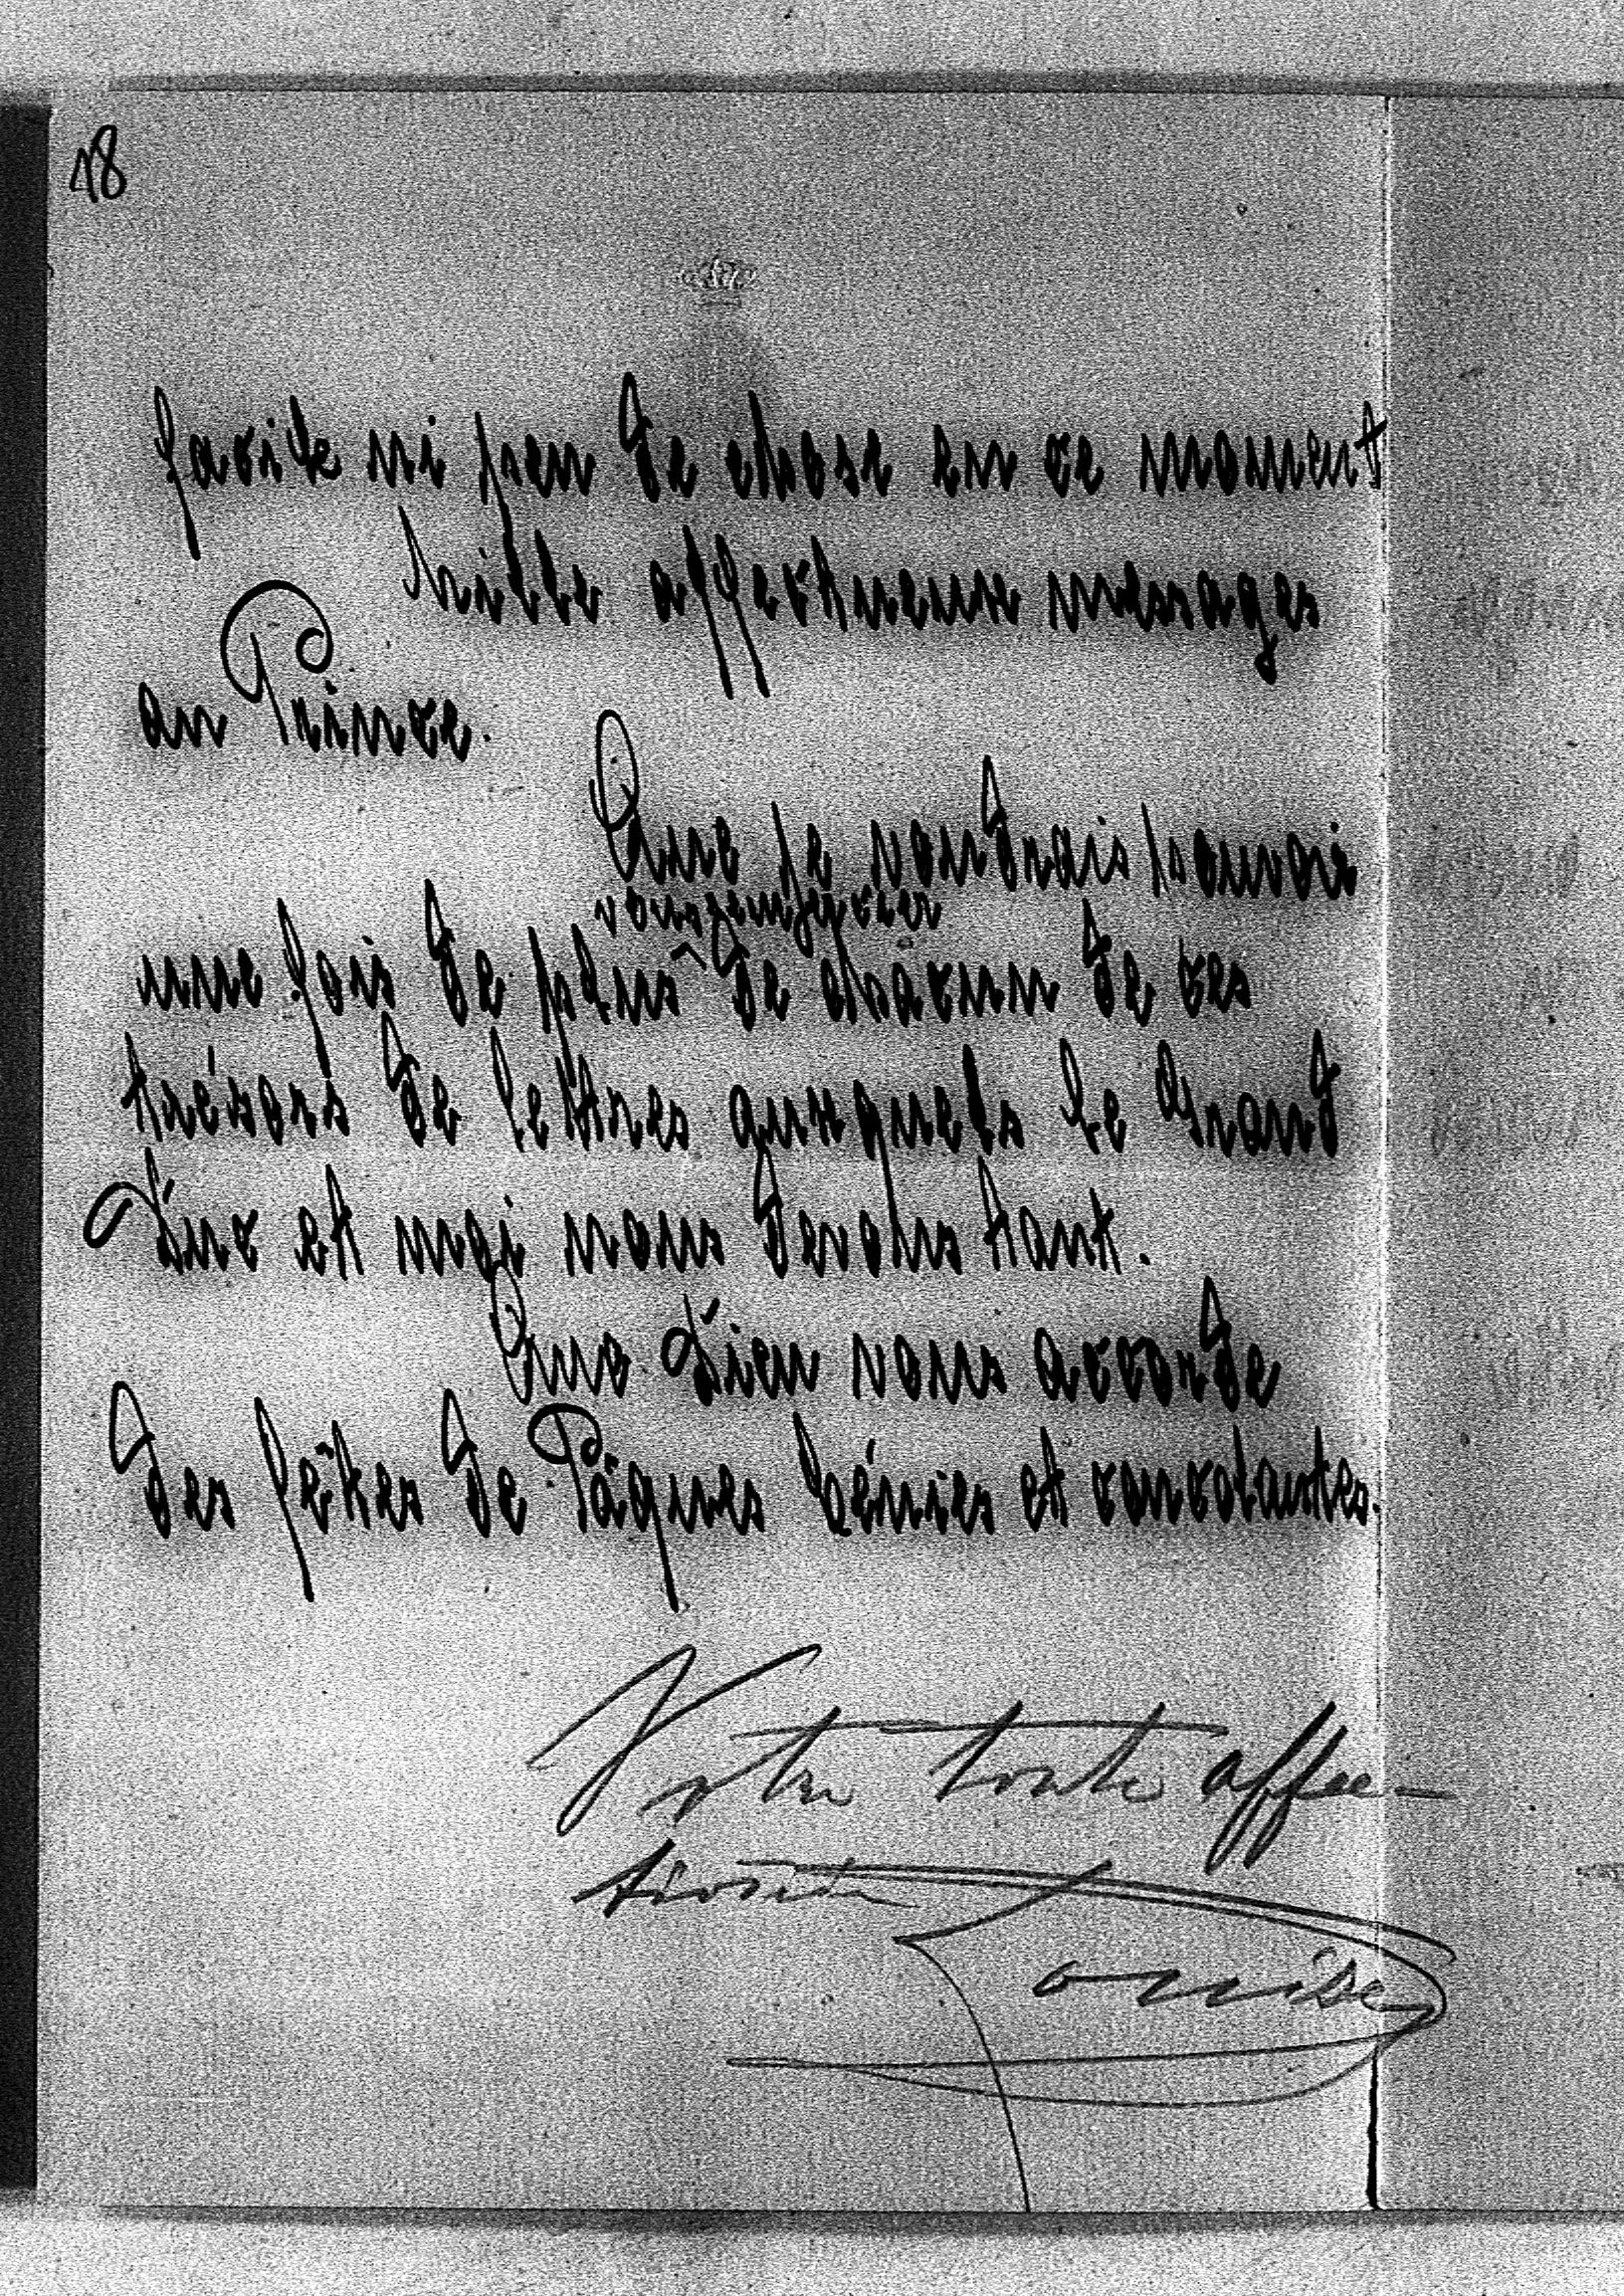 18
favite ni peu de chose en ce moment
Mille affectueux messages
au Prince.
Que je voudrais pouvoir
vous remercier
une fois de plus ^ de chacun de ces
trésors de lettres auxquels le Grand
Duc et moi nous devons tant.
Que Dieu vous accorde
des fêtes de Pâques bénies et consolantes.
Votre toute affec-
tionnée
Louise